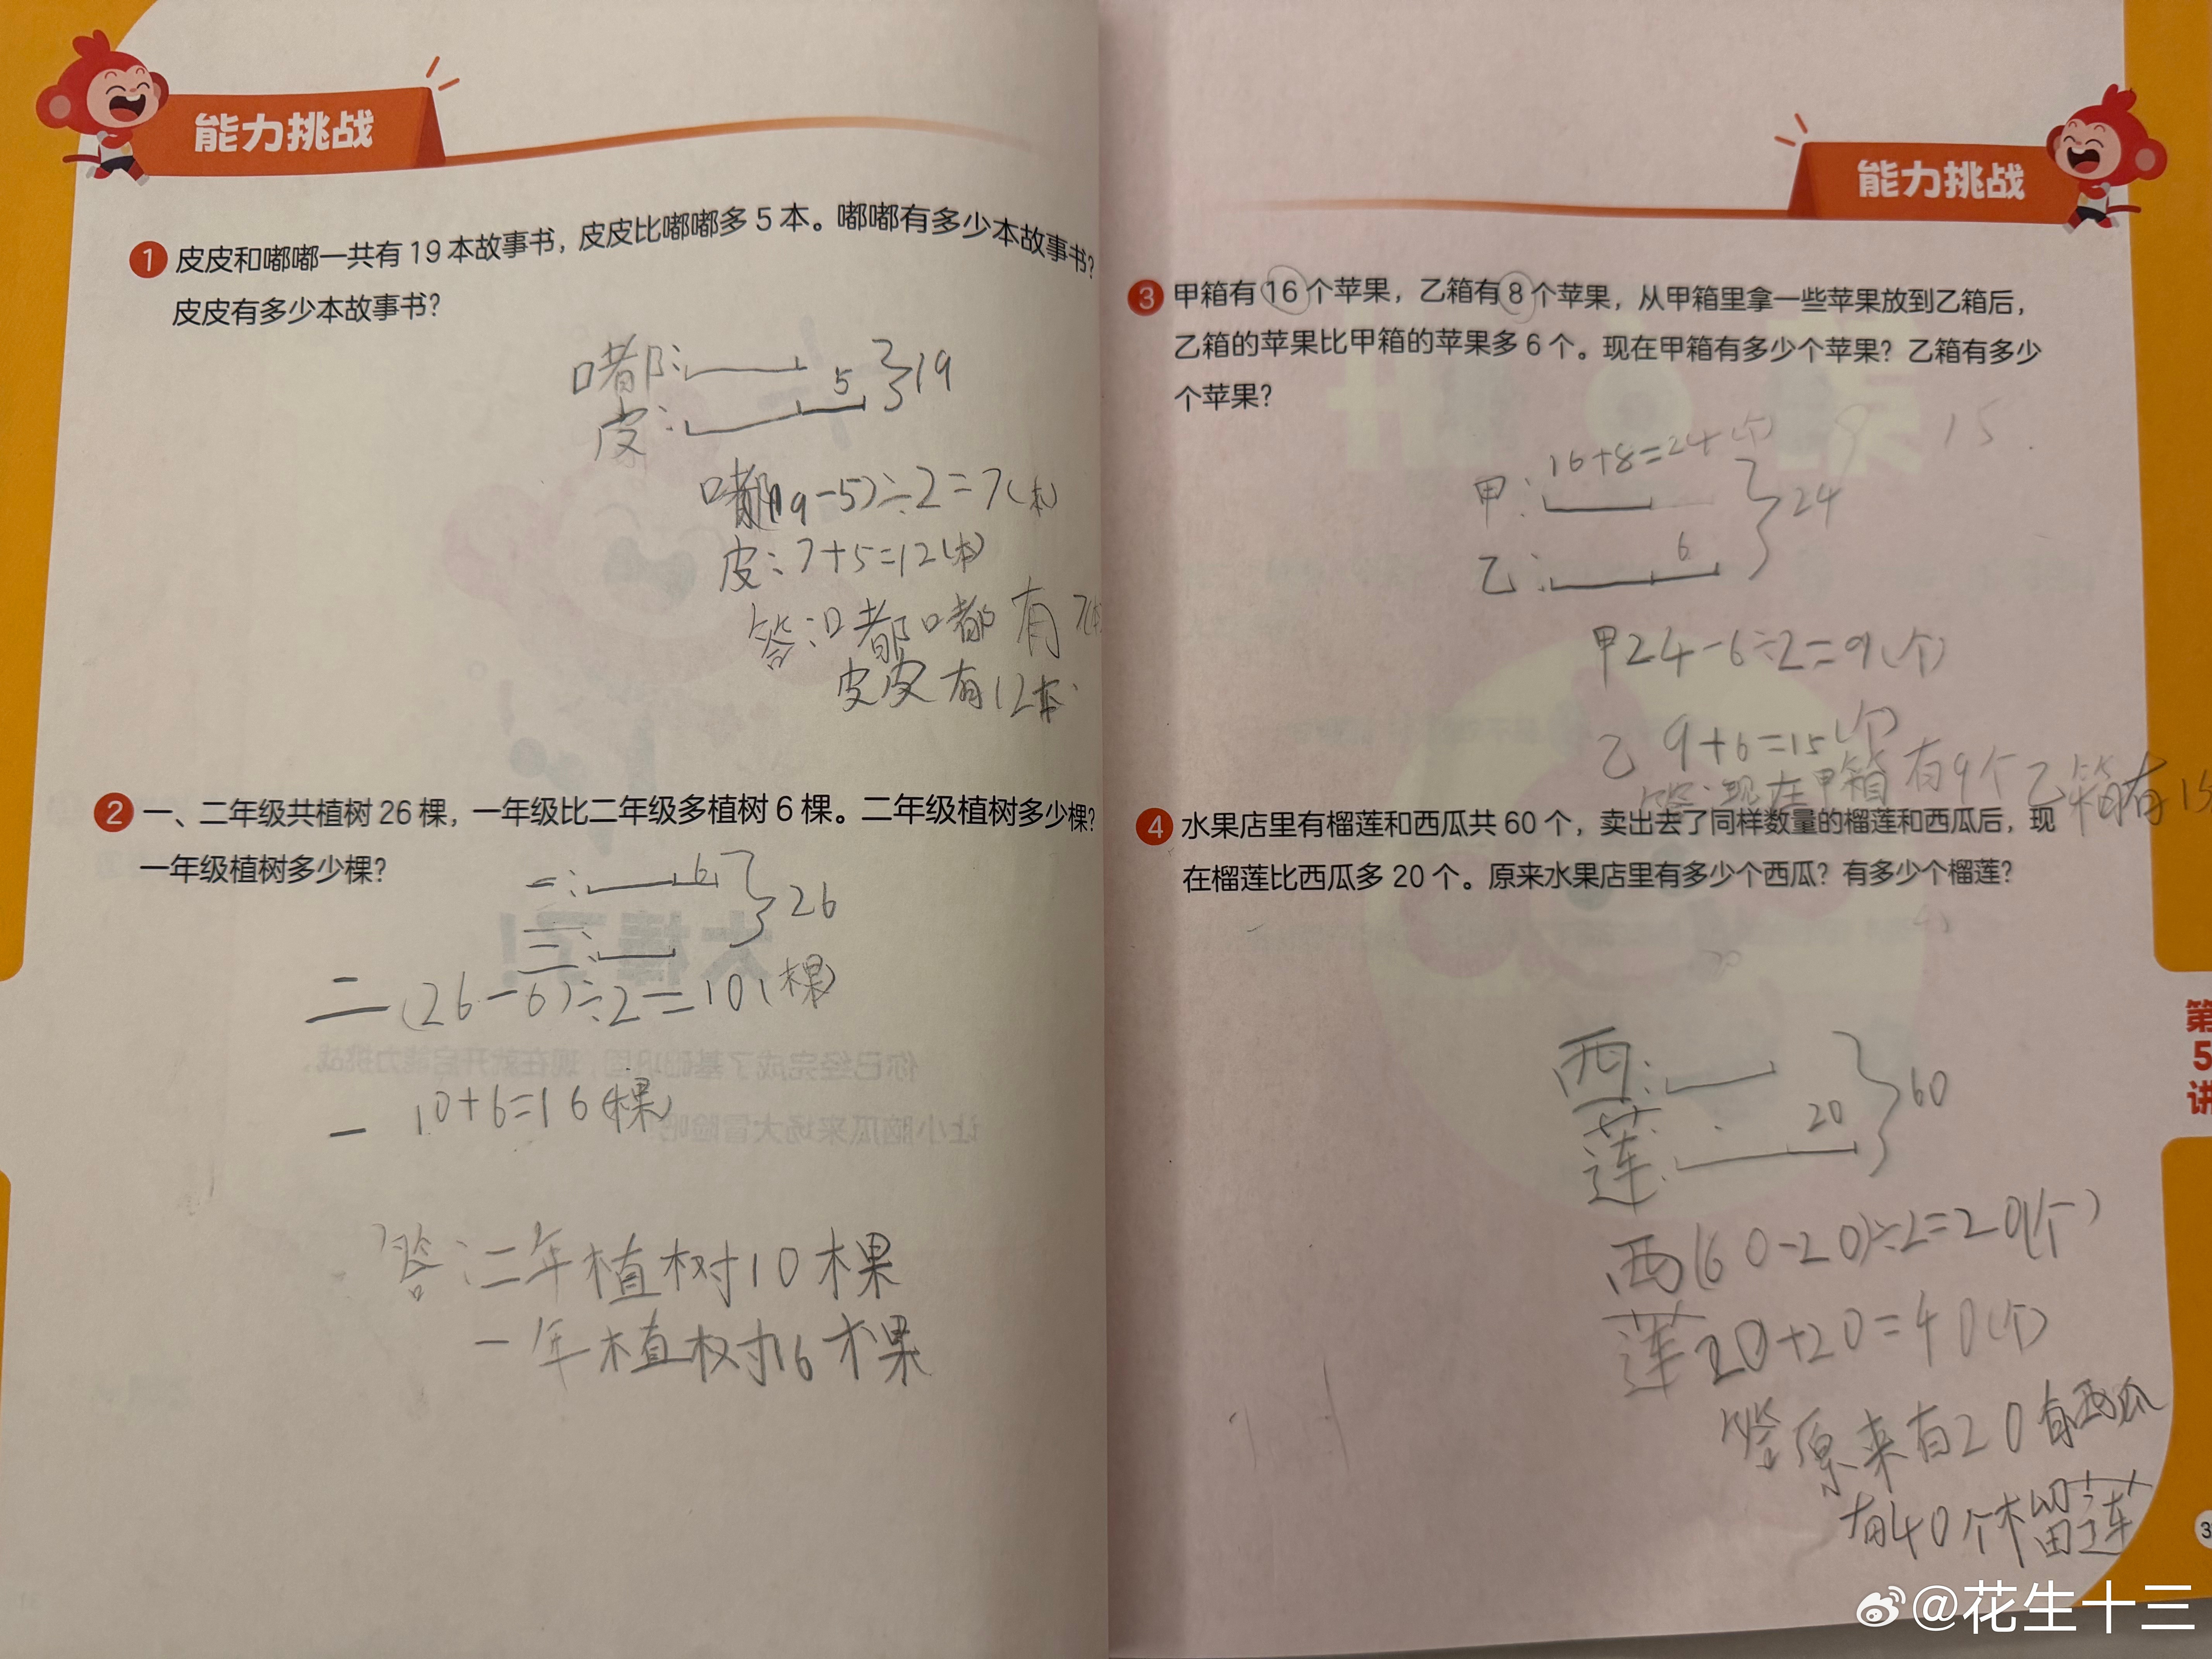 能力挑战
1 皮皮和嘟嘟一共有19本故事书，皮皮比嘟嘟多5本。嘟嘟有多少本故事书？
皮皮有多少本故事书？
嘟：
5
皮：
19
嘟(19-5)÷2=7(本)
皮：7+5=12(本)
答：嘟嘟有7本
皮皮有12本
2 一、二年级共植树26棵，一年级比二年级多植树6棵。二年级植树多少棵？
一年级植树多少棵？
一：
6
二：
26
二(26-6)÷2=10(棵)
一 10+6=16(棵)
答：二年植树10棵
一年植树16棵
能力挑战
3 甲箱有16个苹果，乙箱有8个苹果，从甲箱里拿一些苹果放到乙箱后，
乙箱的苹果比甲箱的苹果多6个。现在甲箱有多少个苹果？乙箱有多少
个苹果？
9 15
16+8=24(个)
甲：
24
6
乙：
甲24-6÷2=9(个)
乙 9+6=15(个)
答：现在甲箱有9个乙箱有15
4 水果店里有榴莲和西瓜共60个，卖出去了同样数量的榴莲和西瓜后，现
在榴莲比西瓜多20个。原来水果店里有多少个西瓜？有多少个榴莲？
西：
60
20
莲：
西(60-20)÷2=20(个)
莲20+20=40(个)
答原来有20有西瓜
有40个榴莲
第
5
讲
@花生十三